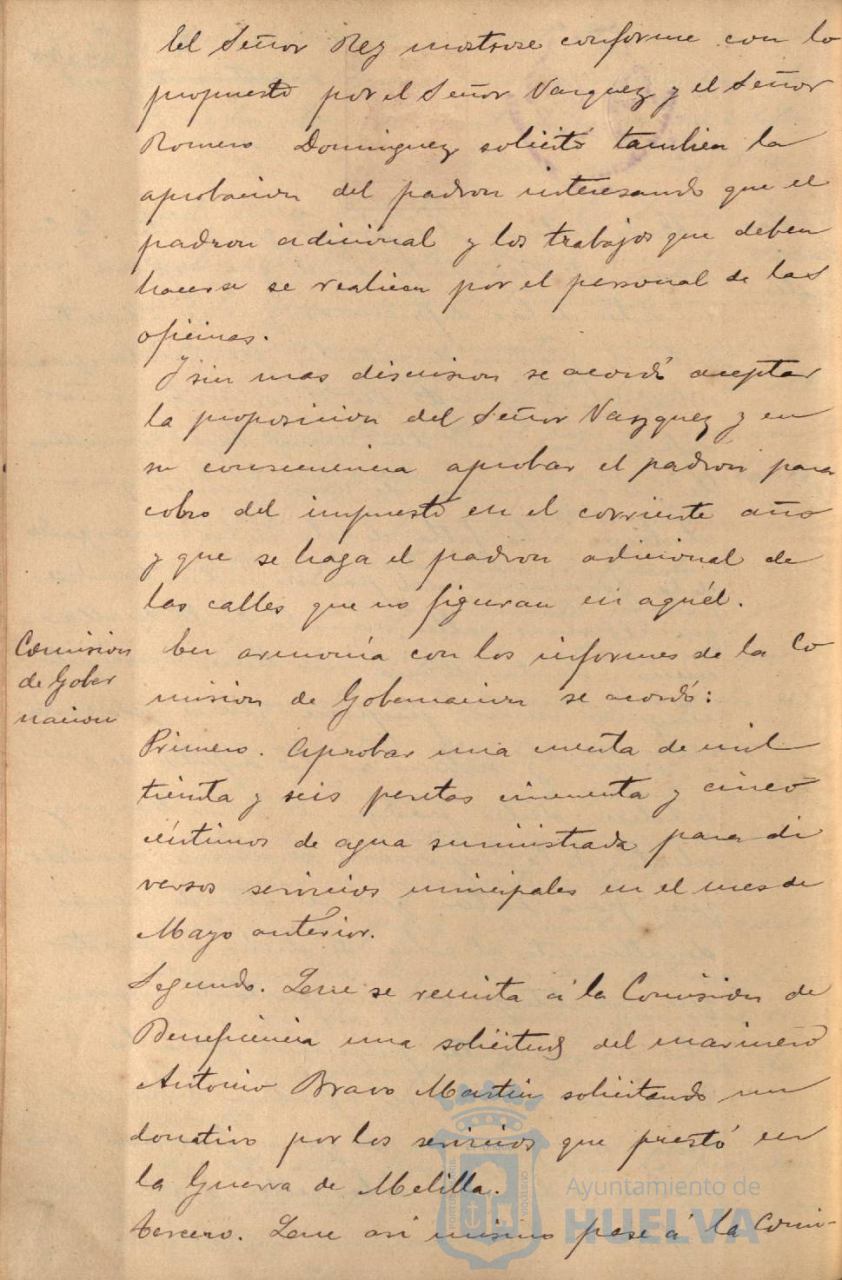 El Señor Rey mostrose conforme con lo
propuesto por el Señor Vazquez y el Señor
Romero Dominguez solicitó tambien la
aprobacion del padron interesando que el
padron adicional y los trabajos que deben
hacerse se realicen por el personal de las
oficinas.
Y sin mas discusion se acordó aceptar
la proposicion del Señor Vazquez y en
su consecuencia aprobar el padron para
cobro del impuesto en el corriente año
y que se haga el padron adicional de
las calles que no figuran en aquél.
Comision
de Gober
nacion
En armonía con los informes de la Co
mision de Gobernacion se acordó:
Primero. Aprobar una cuenta de mil
treinta y seis pesetas cincuenta y cinco
céntimos de agua suministrada para di
versos servicios municipales en el mes de
Mayo anterior.
Segundo. Que se remita á la Comision de
Beneficencia una solicitud del marinero
Antonio Bravo Martin solicitando un
donativo por los servicios que prestó en
la Guerra de Melilla.
Tercero. Que asi mismo pase á la Comi-
Ayuntamiento de
HUELVA